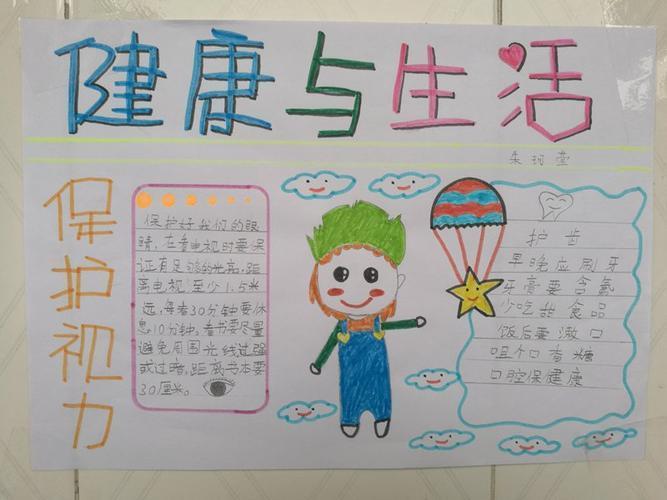 健康与生活
朱珂莹
保护视力
保护好我们的眼
睛,在看电视时要保
证有足够的光亮,距
离电视至少1.5米
远,每看30分钟要休
息10分钟,看书要尽量
避免周围光线过强
或过暗,距离书本要
30厘米。
护齿
早晚应刷牙
牙膏要含氟
少吃甜食品
饭后要漱口
咀个口香糖
口腔保健康